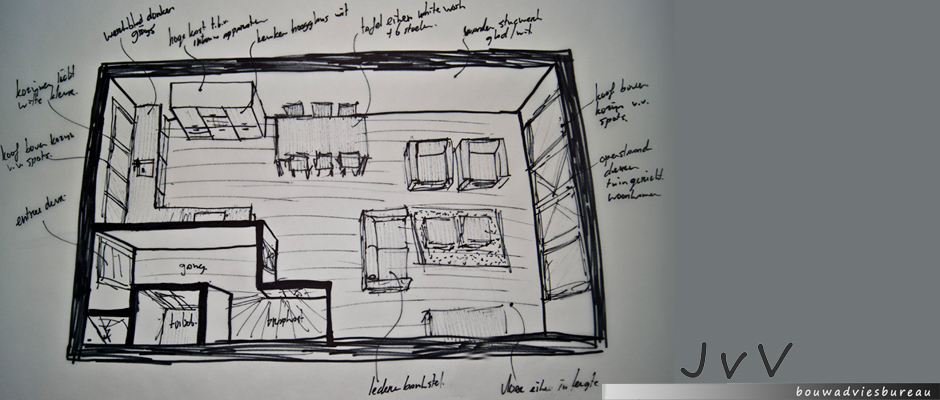 werkblad donker
grijs
hoge kast t.b.v.
inbouw apparaten
keuken hoogglans wit
tafel eiken white wash
+ 6 stoelen.
wanden stucwerk
glad / wit
kozijnen licht
witte kleur.
koof boven kozijn
v.v. spots.
koof boven
kozijn v.v.
spots.
openslaand
deuren
tuingericht
woonkamer
entree deur.
gang
toilet
traphuis
lederen bankstel.
vloer eiken in lengte
JvV
bouwadviesbureau